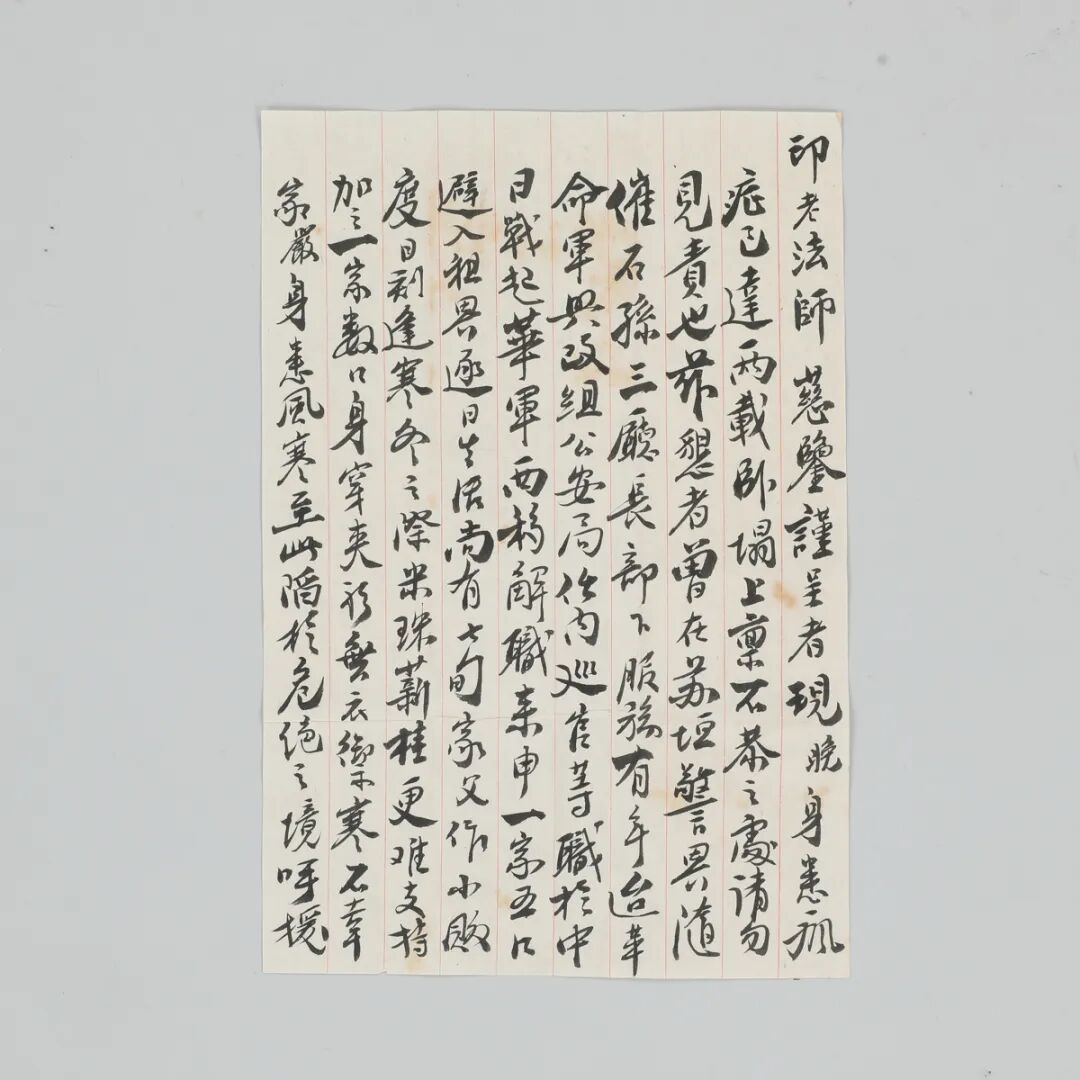 印老法師 慈鑒謹呈者現晚身患瘋
症已達兩載卧榻上稟不恭之處請勿
見責也茲懇者曾在苏垣警界隨
催石孫三廳長部下服務有年迨革
命軍興改組公安局仕內巡官等職於中
日戰起華軍西移解職來申一家五口
避入租界逐日生活尚有七旬家父作小販
度日刻逢寒冬之際米珠薪桂更难支持
加之一家数口身穿夹衫無衣禦寒不幸
家嚴身患風寒至此陷於危绝之境呼援